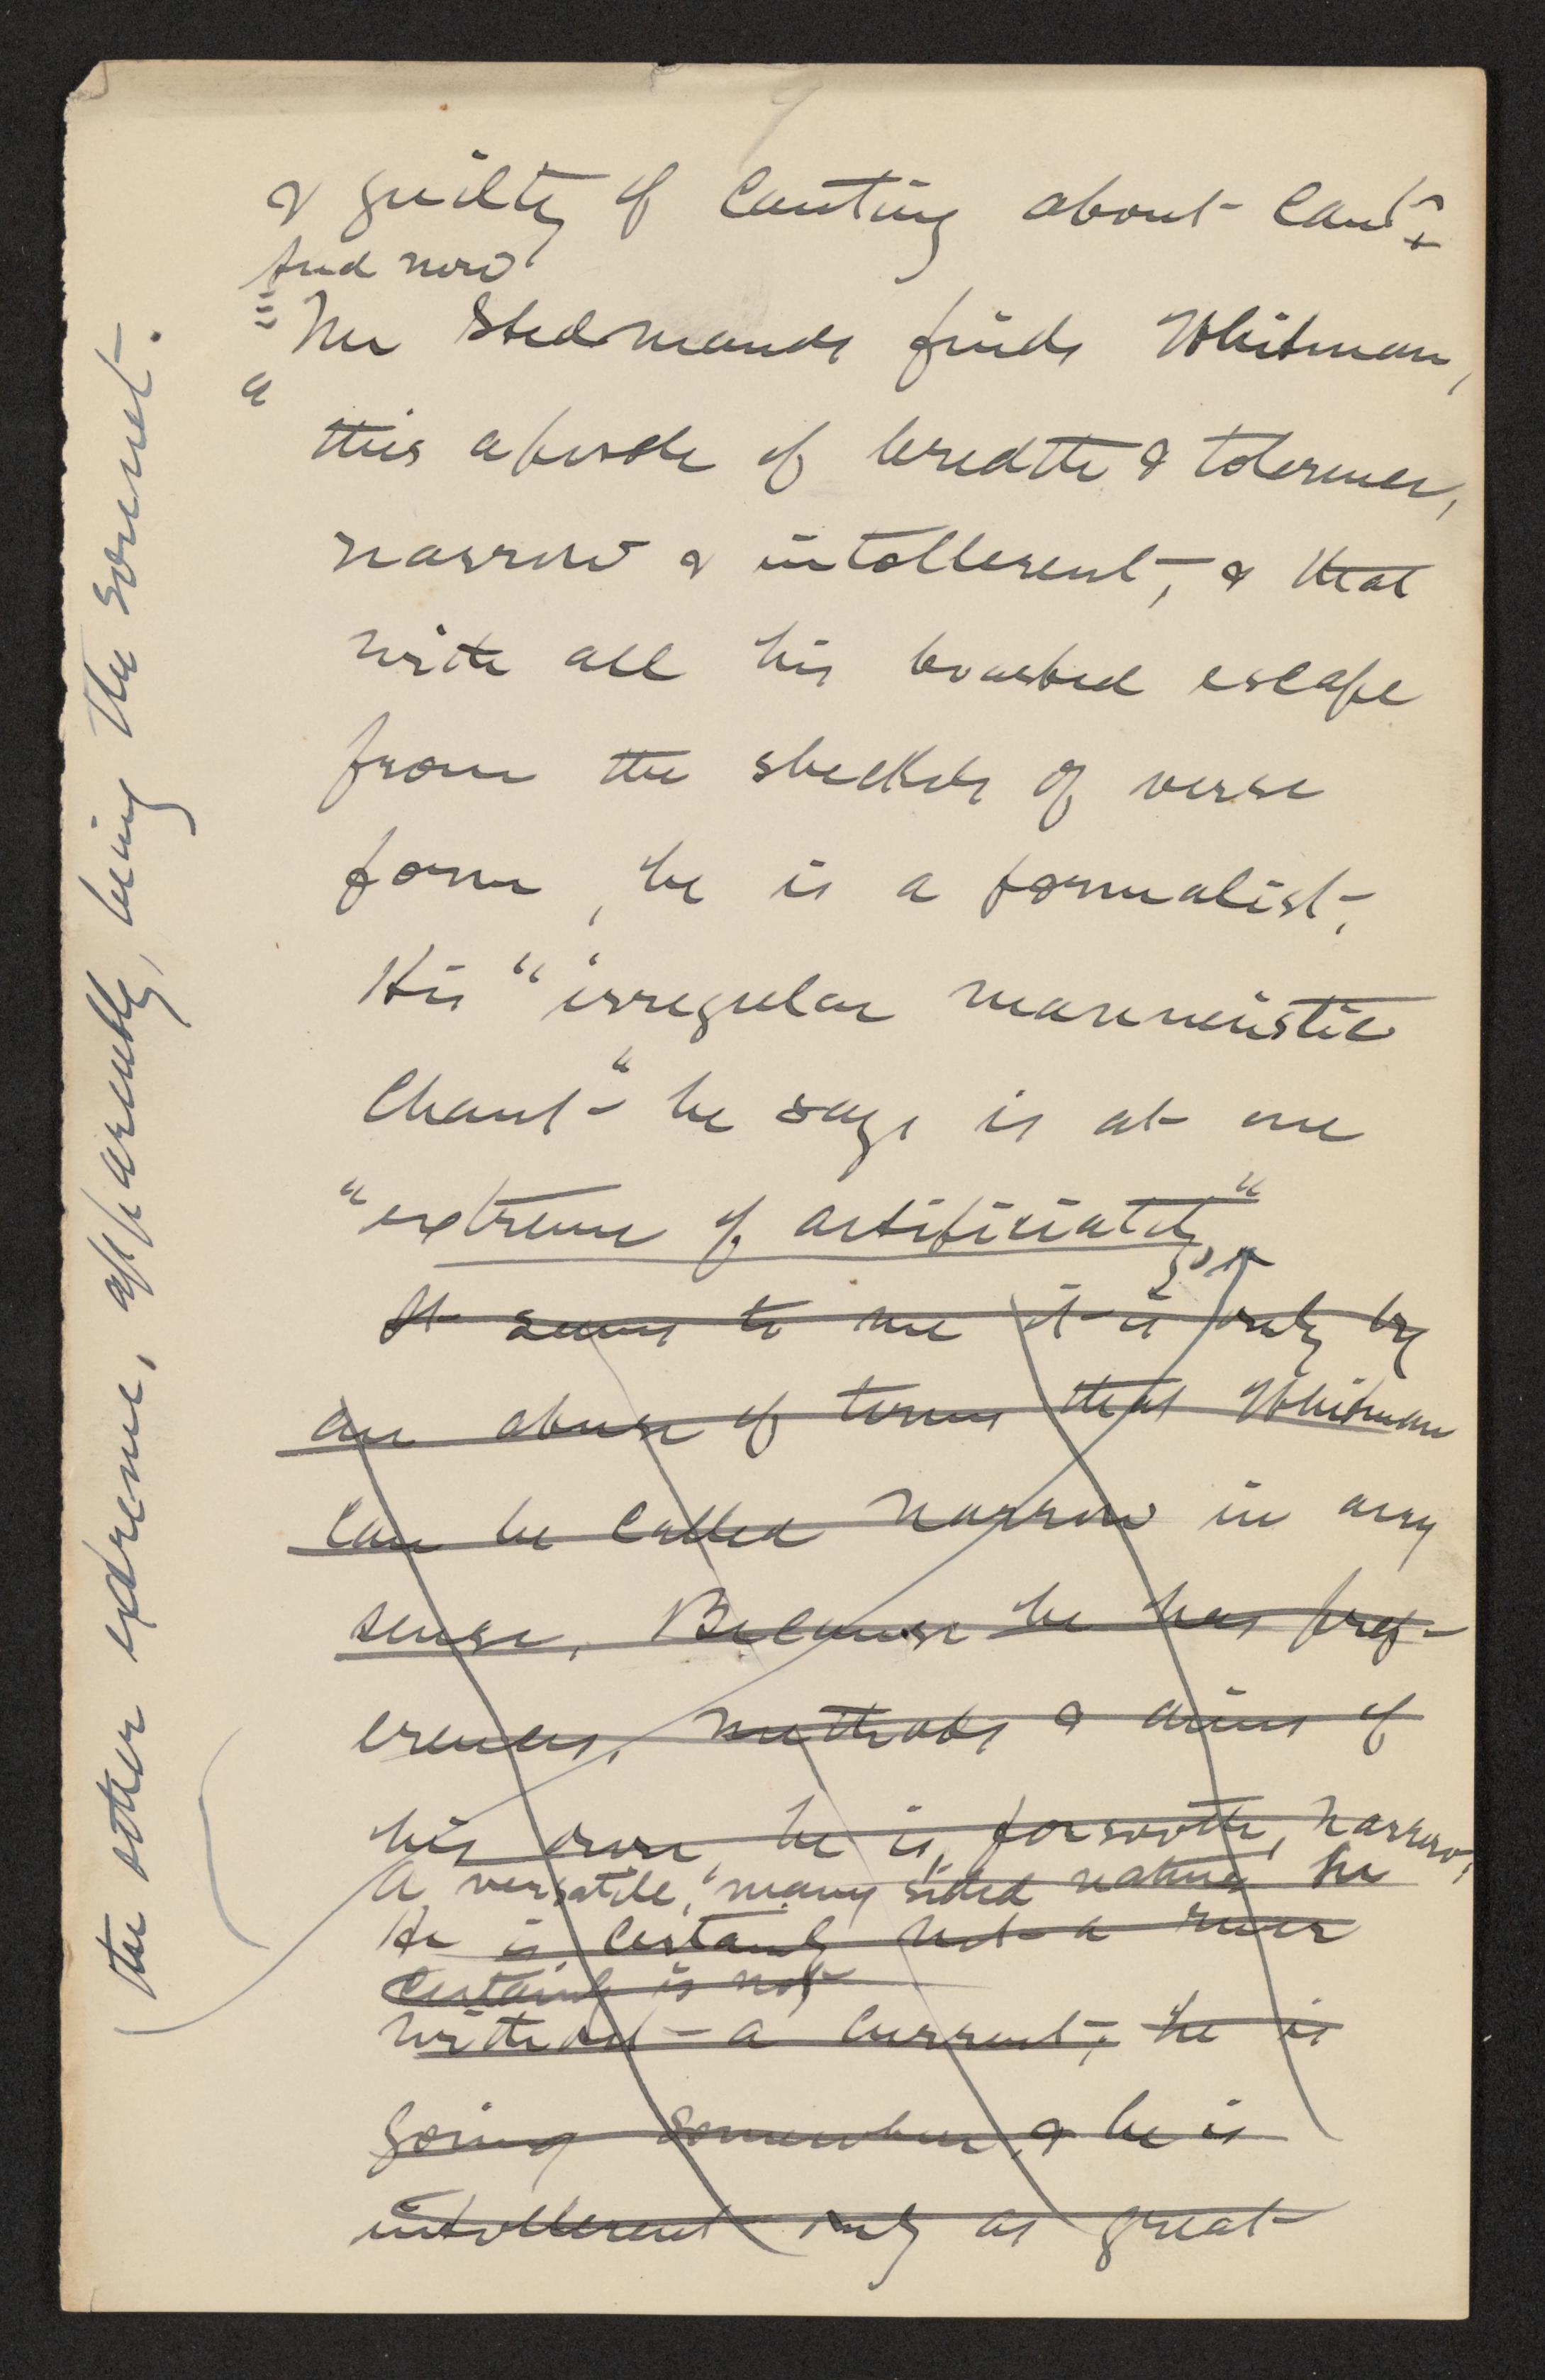 9
& guilty of Canting about Cant?
And now
"Mr Stedmands finds Whitman,
this apostle of bredth & tolerence,
narrow & intollerent, & that
with all his boasted escape
from the shackels of verse
form, he is a formalist,
His "irregular manneristic
Chant" he says is at one
"extreme of artificiality"
It seems to me it is only by
an abuse of terms that Whitman
can be called narrow in any
sense, Because he has pref-
erences, methods & aims of
his own, he is, forsooth, narrow,
A versatile, "many sided" nature he
He is certainly not a river
certainly is not
without a current; he is
going somewhere, & he is
intollerent only as great
the other extreme, apparently, being the sonnet.